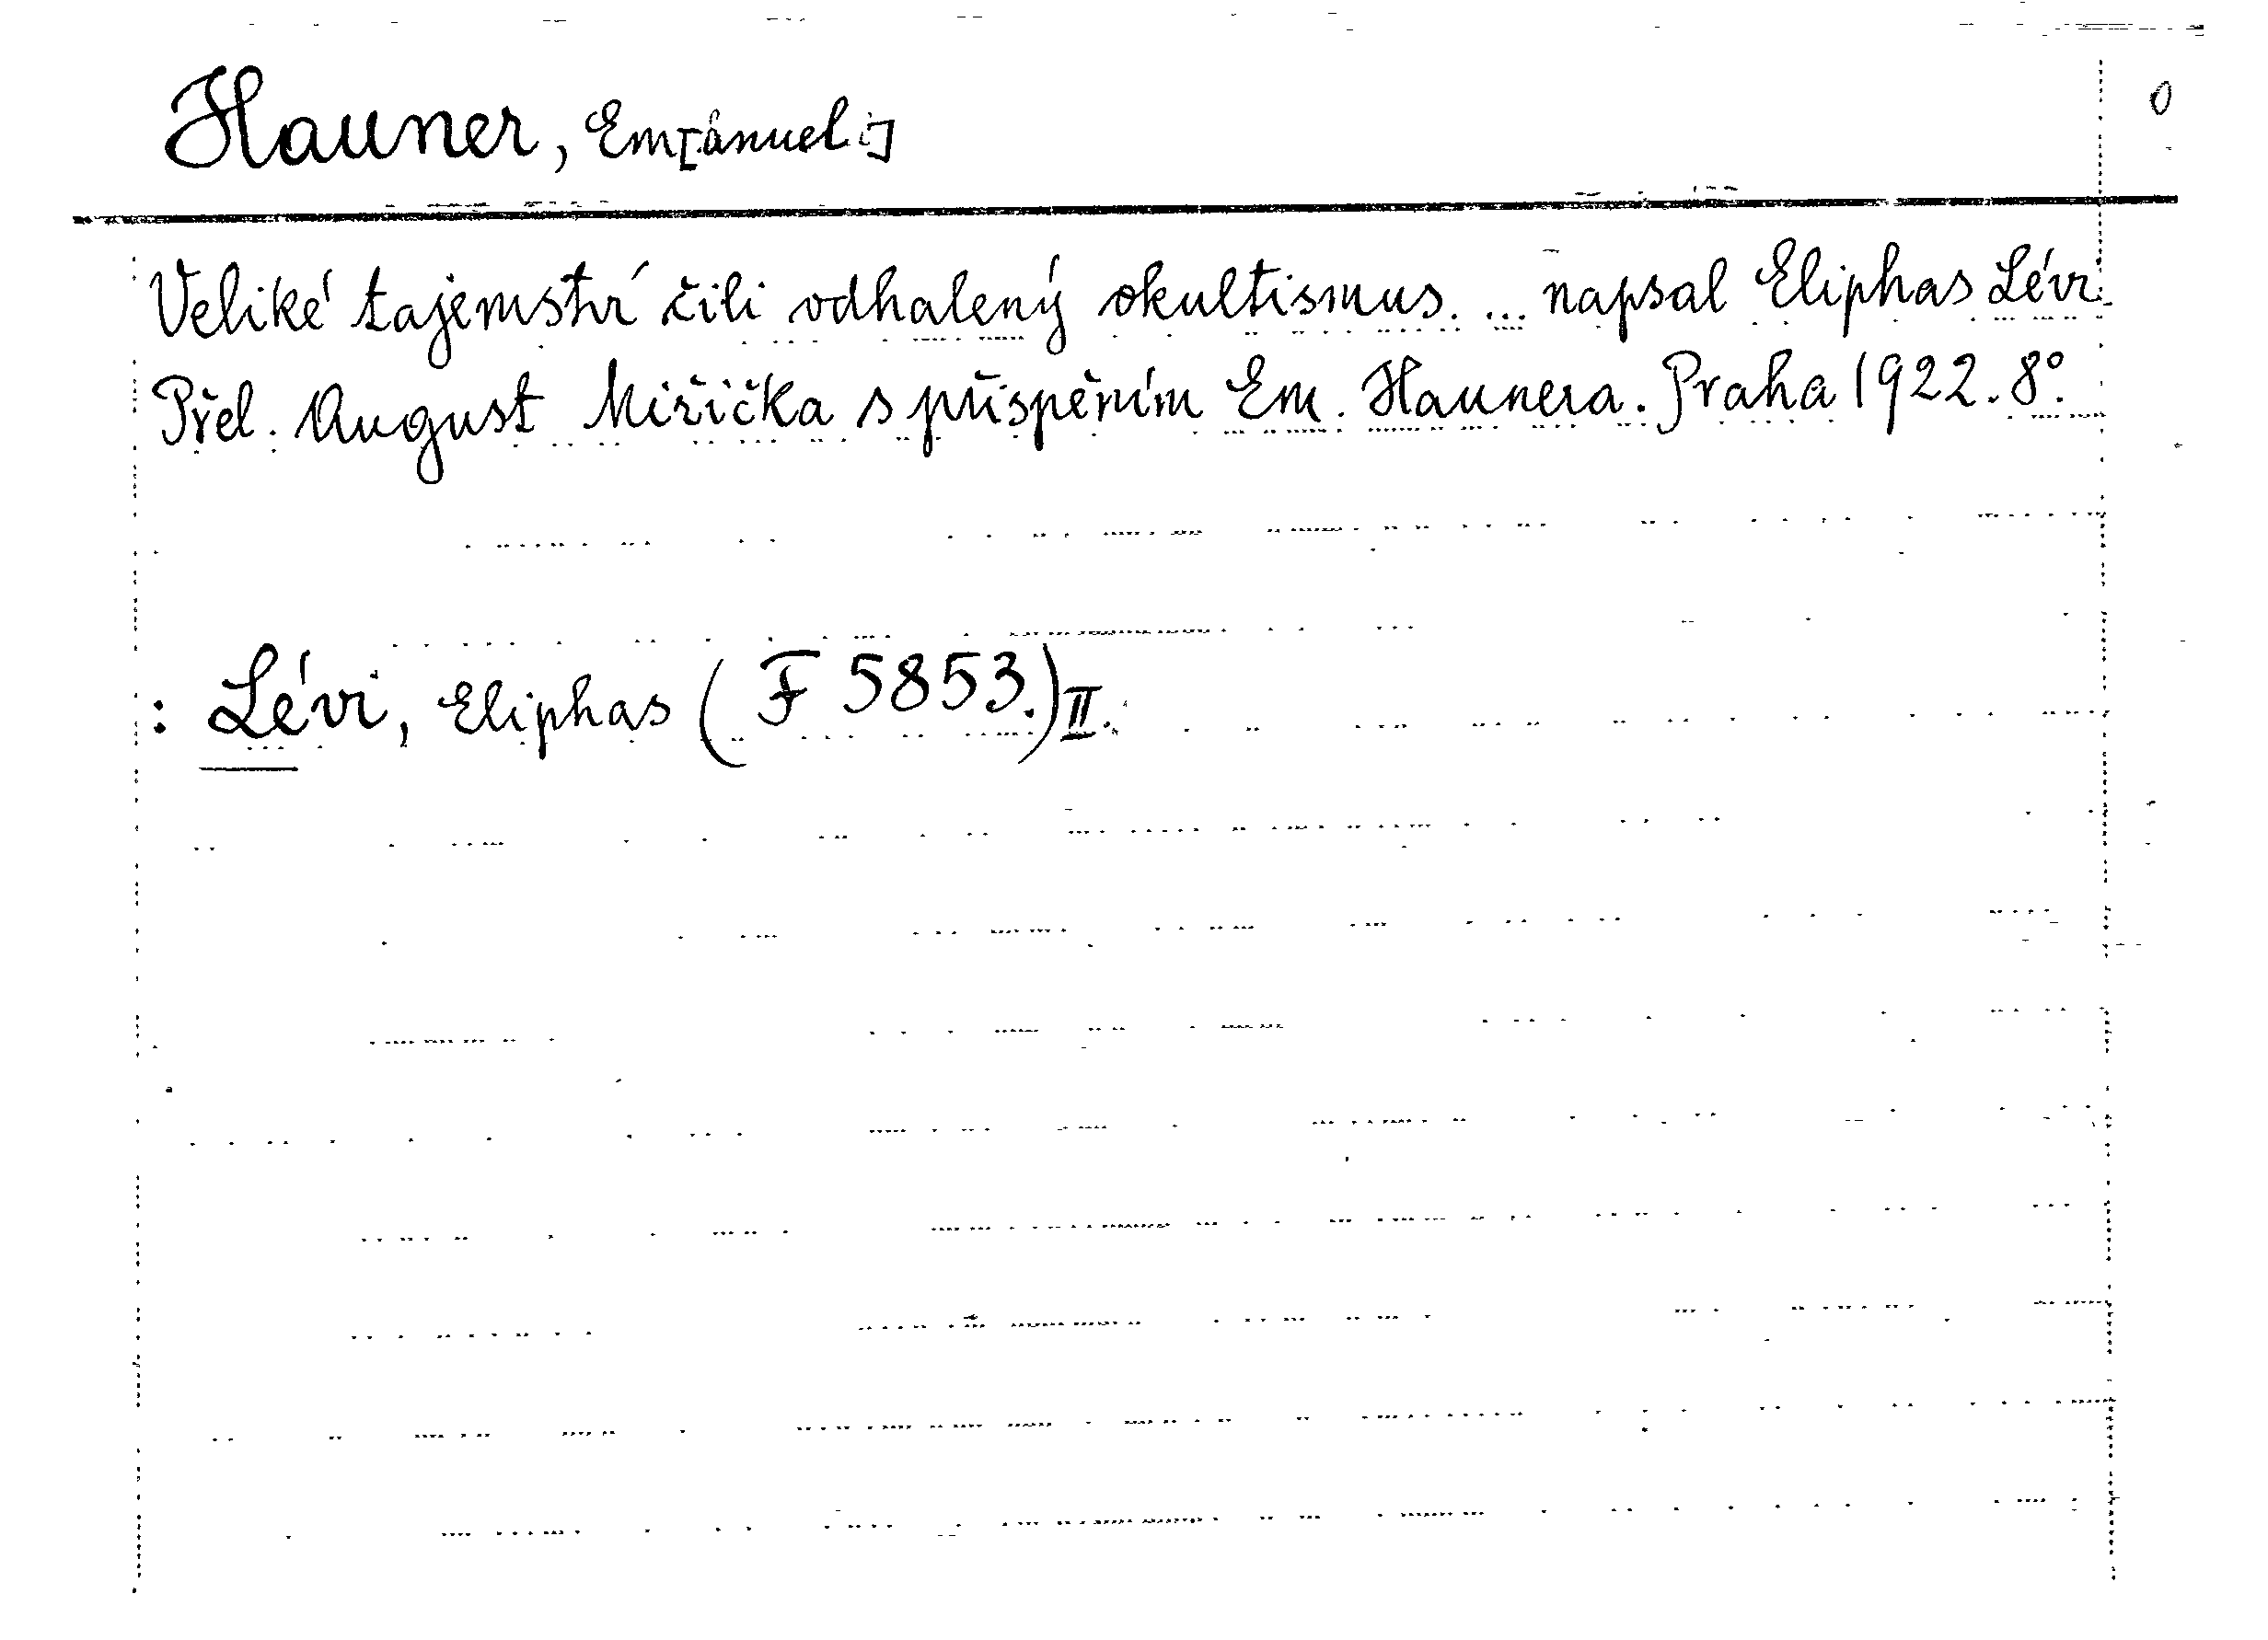 Hauner, Em[anuel]
0
Veliké tajemství čili odhalený okultismus. ... napsal Eliphas Lévi.
Přel. August Miřička s přispěním Em. Haunera. Praha 1922. 8°.
: Lévi, Eliphas (F 5853.) II.